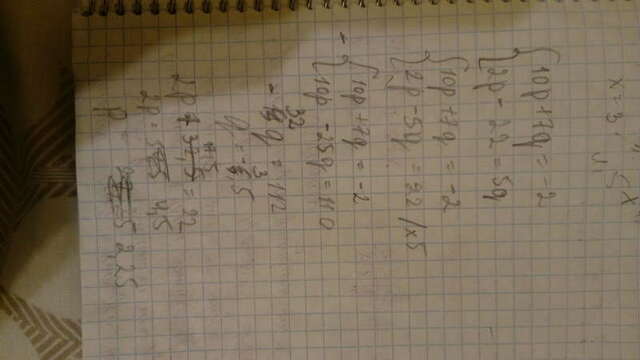 x = 3
{ 10p + 7q = -2
{ 2p - 22 = 5q
{ 10p + 7q = -2
{ 2p - 5q = 22 / x5
- { 10p + 7q = -2
{ 10p - 25q = 110
- 32q = 112
q = -3,5
2p + 17,5 = 22
2p = 4,5
p = 2,25